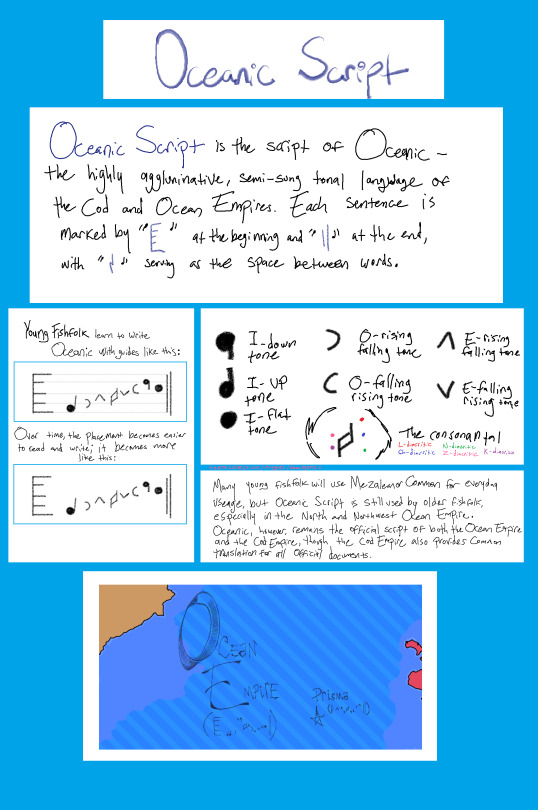 Oceanic Script
Oceanic Script is the script of Oceanic –
the highly agglunative, semi-sung tonal language of
the Cod and Ocean Empires. Each sentence is
marked by "E" at the beginning and "||" at the end,
with "𝅘𝅥" serving as the space between words.
Young Fishfolk learn to write
Oceanic with guides like this:
Over time, the placement becomes easier
to read and write; it becomes more
like this:
I-down
tone
O-rising
falling tone
E-rising
falling tone
I-up
tone
O-falling
rising tone
E-falling
rising tone
I-flat
tone
The consonantal
L-diacritic N-diacritic
Ch-diacritic Z-diacritic K-diacritic
Many young fishfolk will use Mezalemor Common for everyday
useage, but Oceanic Script is still used by older fishfolk,
especially in the North and Northwest Ocean Empire.
Oceanic, however, remains the official script of both the Ocean Empire
and the Cod Empire, though the Cod Empire also provides Common
translation for all official documents.
Ocean
Empire
Prisma